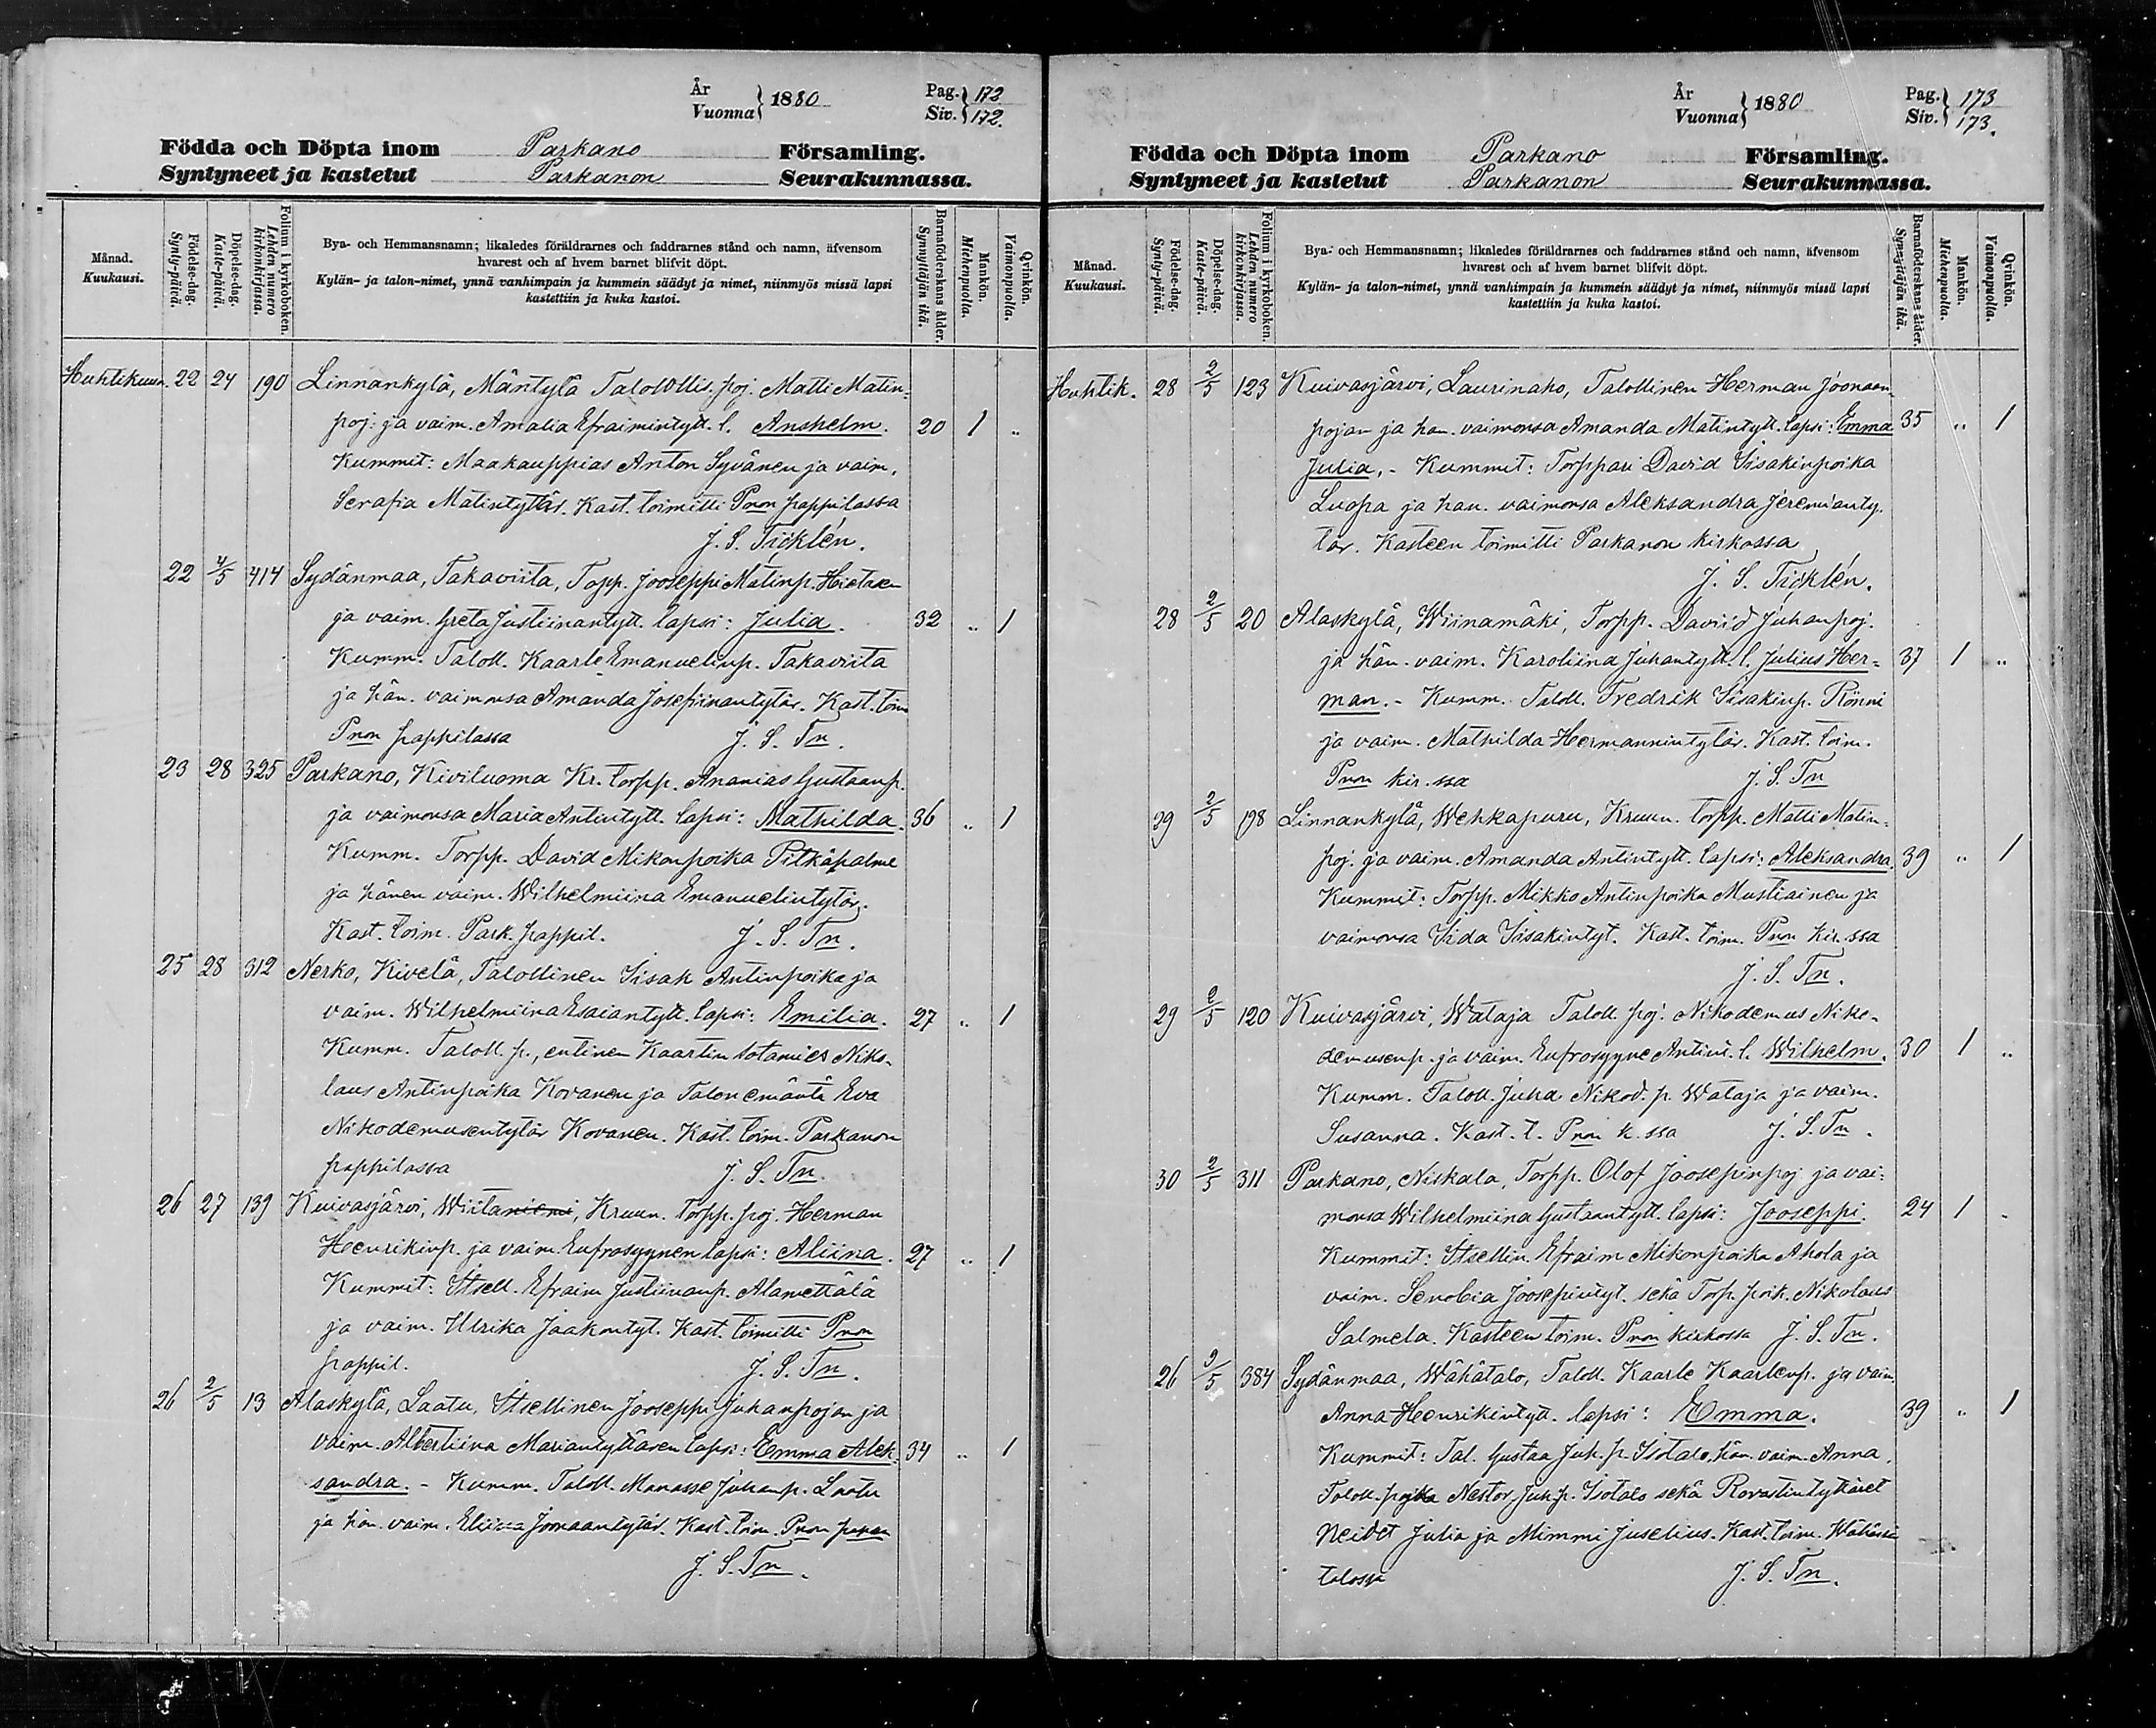 År
Vuonna } 1880
Pag.
Siv. } 172
172.
Födda och Döpta inom Parkano Församling.
Syntyneet ja kastetut Parkanon Seurakunnassa.
Månad.
Kuukausi.
Födelse-dag.
Synty-päivä.
Döpelse-dag.
Kaste-päivä.
Folium i kyrkoboken.
Lehden numero kirkonkirjassa.
Bya- och Hemmansnamn; likaledes föräldrarnes och faddrarnes stånd och namn, äfvensom
hvarest och af hvem barnet blifvit döpt.
Kylän- ja talon-nimet, ynnä vanhimpain ja kummein säädyt ja nimet, niinmyös missä lapsi
kastettiin ja kuka kastoi.
Barnaföderskans ålder.
Synnyttäjän ikä.
Mankön.
Miehenpuolla.
Qvinkön.
Vaimonpuolla.
Huhtikuun. 22 24 190 Linnankylä, Mäntylä Talollis. poj. Matti Matin-
poj: ja vaim. Amalia Efraimintytt. l. Anshelm. 20 1 ..
Kummit: Maakauppias Anton Syvänen ja vaim.
Serafia Matintytär. Kast. toimitti Pnon pappilassa
J. S. Ticklén.
22 4/5 414 Sydänmaa, Takaviita, Topp. Jooseppi Matinp. Hietasen
ja vaim. Greta Justiinantytt. lapsi: Julia. 32 .. 1
Kumm. Taloll. Kaarle Emanuelinp. Takaviita
ja hän. vaimonsa Amanda Josefiinantytär. Kast. toim
Pnon pappilassa J. S. Tn.
23 28 325 Parkano, Kiviluoma Kr. torpp. Ananias Gustaanp.
ja vaimonsa Maria Antintytt. lapsi: Mathilda. 36 .. 1
Kumm. Torpp. David Mikonpoika Pitkäpalme
ja hänen vaim. Wilhelmiina Emanuelintytär.
Kast. toim. Park. pappil. J. S. Tn.
25 28 312 Nerko, Kivelä, Talollinen Iisak Antinpoika ja
vaim. Wilhelmiina Esaiantytt. lapsi: Emilia. 27 .. 1
Kumm. Taloll. p., entinen Kaartin sotamies Niko-
laus Antinpoika Kovanen ja Talonemäntä Eva
Nikodemusentytär Kovanen. Kast. toim. Parkanon
pappilassa J. S. Tn.
26 27 139 Kuivasjärvi, Wiitaniemi, Kruun. Torpp. poj. Herman
Henrikinp. ja vaim. Eufrosyynen lapsi: Aliina. 27 .. 1
Kummit: Itsell. Efraim Justiinanp. Alamettälä
ja vaim. Ulrika Jaakontyt. Kast. toimitti Pnon
pappil. J. S. Tn.
26 2/5 13 Alaskylä, Laatu, Itsellinen Jooseppi Juhanpojan ja
vaim. Albertiina Mariantyttären lapsi: Emma Alek- 34 .. 1
sandra. - Kumm. Taloll. Manasse Juhanp. Laatu
ja hän. vaim. Eliina Joonaantytär. Kast. toim. Pnon
J. S. Tn.
År
Vuonna } 1880
Pag.
Siv. } 173
173.
Födda och Döpta inom Parkano Församling.
Syntyneet ja kastetut Parkanon Seurakunnassa.
Månad.
Kuukausi.
Födelse-dag.
Synty-päivä.
Döpelse-dag.
Kaste-päivä.
Folium i kyrkoboken.
Lehden numero kirkonkirjassa.
Bya- och Hemmansnamn; likaledes föräldrarnes och faddrarnes stånd och namn, äfvensom
hvarest och af hvem barnet blifvit döpt.
Kylän- ja talon-nimet, ynnä vanhimpain ja kummein säädyt ja nimet, niinmyös missä lapsi
kastettiin ja kuka kastoi.
Barnaföderskans ålder.
Synnyttäjän ikä.
Mankön.
Miehenpuolla.
Qvinkön.
Vaimonpuolla.
Huhtik. 28 2/5 123 Kuivasjärvi, Laurinaho, Talollinen Herman Joonaan-
pojan ja hän. vaimonsa Amanda Matintytt. lapsi: Emma 35 .. 1
Julia. - Kummit: Torppari David Iisakinpoika
Luopa ja hän. vaimonsa Aleksandra Jeremianty-
tär. Kasteen toimitti Parkanon kirkossa
J. S. Ticklén.
28 2/5 20 Alaskylä, Wiinamäki, Torpp. Daviid Juhanpoj.
ja hän. vaim. Karoliina Juhantytt. l. Julius Her- 37 1 ..
man. - Kumm. Taloll. Fredrik Iisakinp. Rönni
ja vaim. Mathilda Hermannintytär. Kast. toim.
Pnon kir.ssa J. S. Tn
29 2/5 198 Linnankylä, Wehkapuru, Kruun. torpp. Matti Matin-
poj. ja vaim. Amanda Antintytt. lapsi: Aleksandra. 39 .. 1
Kummit: Torpp. Mikko Antinpoika Mustiainen ja
vaimonsa Iida Iisakintyt. Kast. toim. Pnon kir.ssa
J. S. Tn.
29 2/5 120 Kuivasjärvi, Wataja Taloll. poj. Nikodemus Niko-
demusenp. ja vaim. Eufrosyyne Antint. l. Wilhelm. 30 1 ..
Kumm. Taloll. Juha Nikod. p. Wataja ja vaim.
Susanna. Kast. t. Pnon k.ssa J. S. Tn.
30 2/5 311 Parkano, Niskala, Torpp. Olof Joosepinpoj ja vai-
monsa Wilhelmiina Gustaantytt. lapsi: Jooseppi. 24 1 ..
Kummit: Itsellin. Efraim Mikonpoika Ahola ja
vaim. Senobia Joosepintyt. sekä Torp. poik. Nikolaus
Salmela. Kasteen toim. Pnon kirkossa J. S. Tn.
26 9/5 384 Sydänmaa, Wähätalo, Taloll. Kaarle Kaarlenp. ja vaim.
Anna Henrikintytt. lapsi: Emma. 39 .. 1
Kummit: Tal. Gustaa Juh. p. Isotalo, hän. vaim. Anna.
Taloll. poika Nestor Juh. p. Isotalo sekä Rovastintyttäret
Neidet Julia ja Mimmi Juselius. Kast. toim. Wähässä
talossa J. S. Tn.